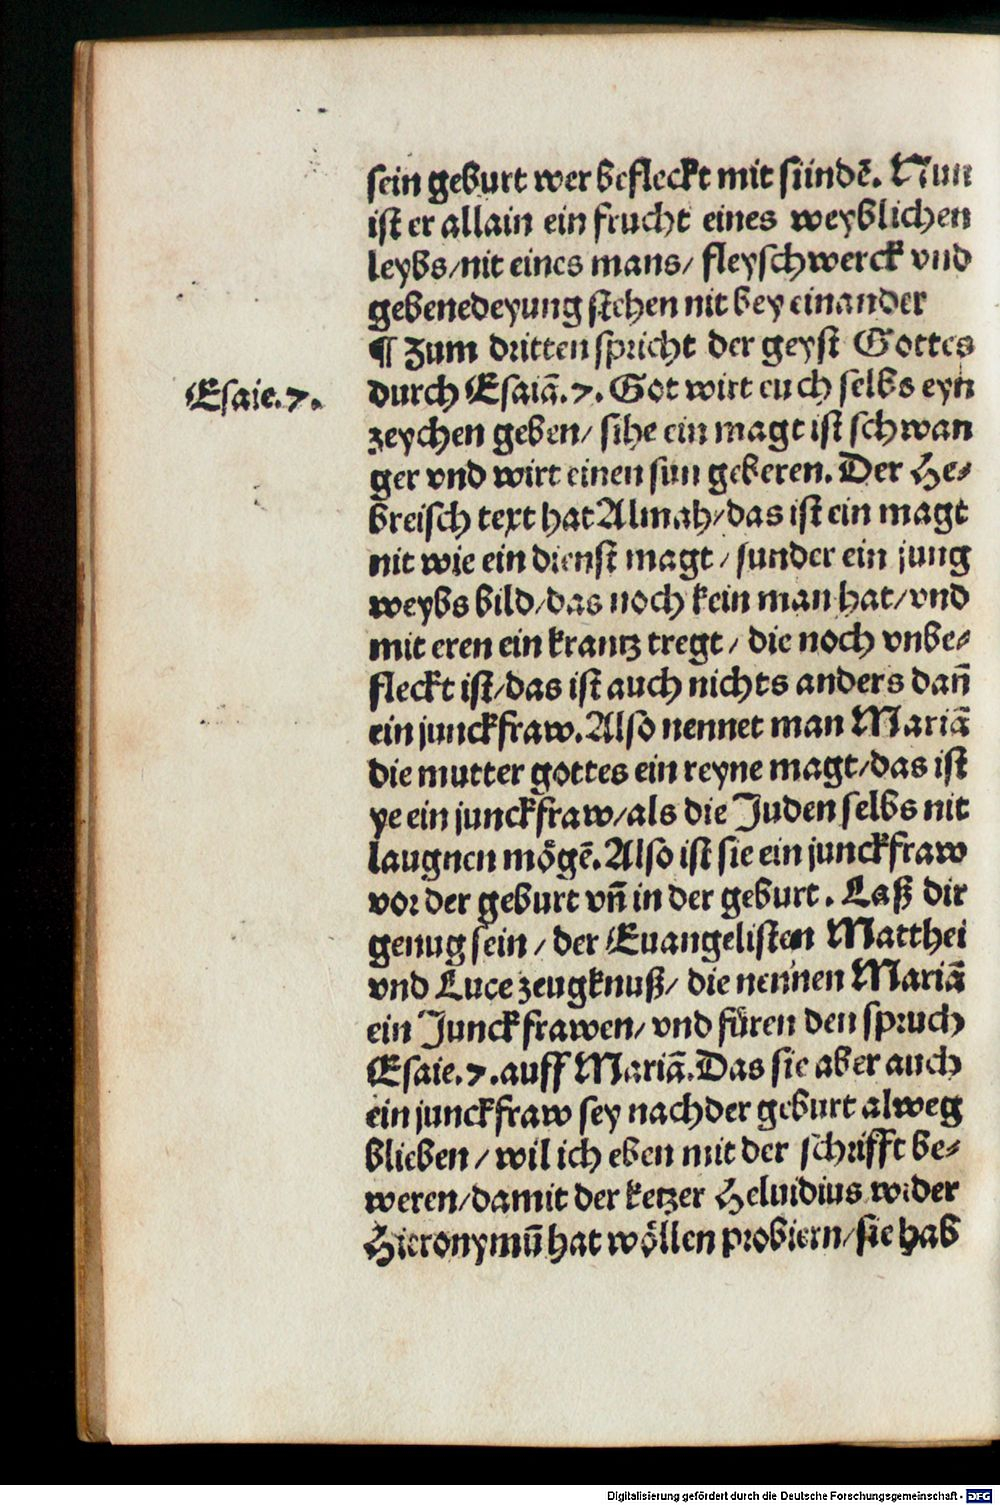 sein geburt wer befleckt mit sündē. Nun
ist er allain ein frucht eines weyblichen
leybs/nit eines mans/ fleyschwerck vnd
gebenedeyung stehen nit bey einander
¶ Zum dritten spricht der geyst Gottes
Esaie.7.
durch Esaiā.7. Got wirt euch selbs eyn
zeychen geben/ sihe ein magt ist schwan
ger vnd wirt einen sun geberen. Der He-
breisch text hat Almah/das ist ein magt
nit wie ein dienst magt/ sunder ein jung
weybs bild/das noch kein man hat/vnd
mit eren ein krantz tregt/ die noch vnbe-
fleckt ist/das ist auch nichts anders dañ
ein junckfraw. Also nennet man Mariā
die mutter gottes ein reyne magt/das ist
ye ein junckfraw/als die Juden selbs nit
laugnen mögē. Also ist sie ein junckfraw
vor der geburt vñ in der geburt. Laß dir
genug sein/ der Euangelisten Matthei
vnd Luce zeugknuß/ die nennen Mariā
ein Junckfrawen/ vnd füren den spruch
Esaie.7.auff Mariā. Das sie aber auch
ein junckfraw sey nach der geburt alweg
blieben/ wil ich eben mit der schrifft be-
weren/damit der ketzer Heluidius wider
Hieronymū hat wöllen probiern/sie hab
Digitalisierung gefördert durch die Deutsche Forschungsgemeinschaft - DFG